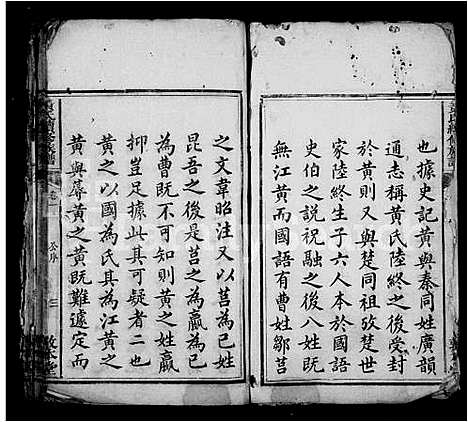 也據史記黃與秦同姓廣韻
通志稱黃氏陸終之後受封
於黃則又與楚同祖攷楚世
家陸終生子六人本於國語
史伯之說祝融之後八姓既
無江黃而國語有曹姓鄒莒
之文韋昭注又以莒為己姓
昆吾之後是莒之為嬴為己
為曹既不可知則黃之姓嬴
抑豈足據此其可疑者二也
黃之以國為氏其為江黃之
黃與蓐黃之黃既難遽定而